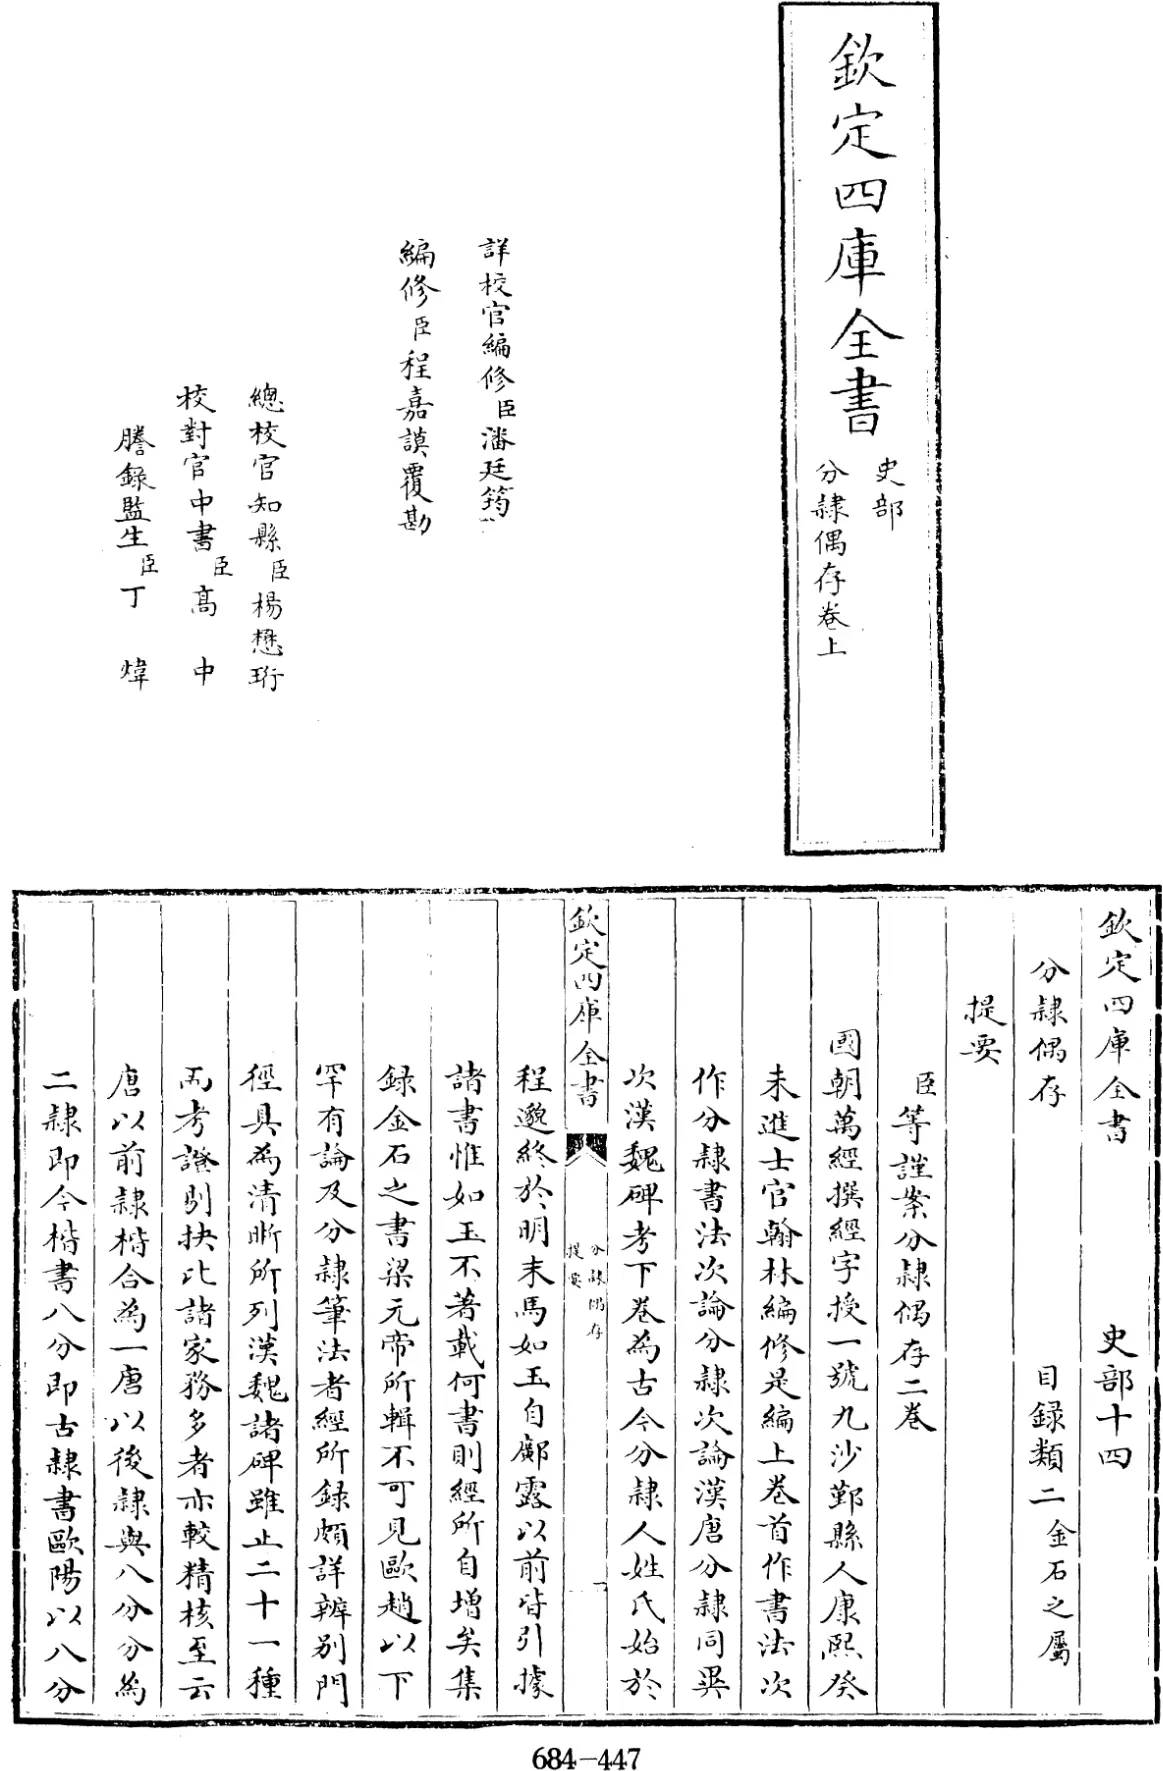 欽定四庫全書
史部
分隸偶存卷上
詳校官編修臣潘廷筠
編修臣程嘉謨覆勘
總校官知縣臣楊懋珩
校對官中書臣高中
謄錄監生臣丁煒
欽定四庫全書 史部十四
分隸偶存 目録類二金石之屬
提要
臣等謹案分隸偶存二卷
國朝萬經撰經字授一號九沙鄞縣人康熙癸
未進士官翰林編修是編上卷首作書法次
作分隸書法次論分隸次論漢唐分隸同異
次漢魏碑考下卷為古今分隸人姓氏始於
欽定四庫全書
分隸偶存
提要
一
程邈終於明末馬如玉自鄺露以前皆引據
諸書惟如玉不著載何書則經所自增矣集
録金石之書梁元帝所輯不可見歐趙以下
罕有論及分隸筆法者經所録頗詳辨别門
徑具為清晰所列漢魏諸碑雖止二十一種
而考證剔抉比諸家務多者亦較精核至云
唐以前隸楷合為一唐以後隸與八分分為
二隸即今楷書八分即古隸書歐陽以八分
684-447